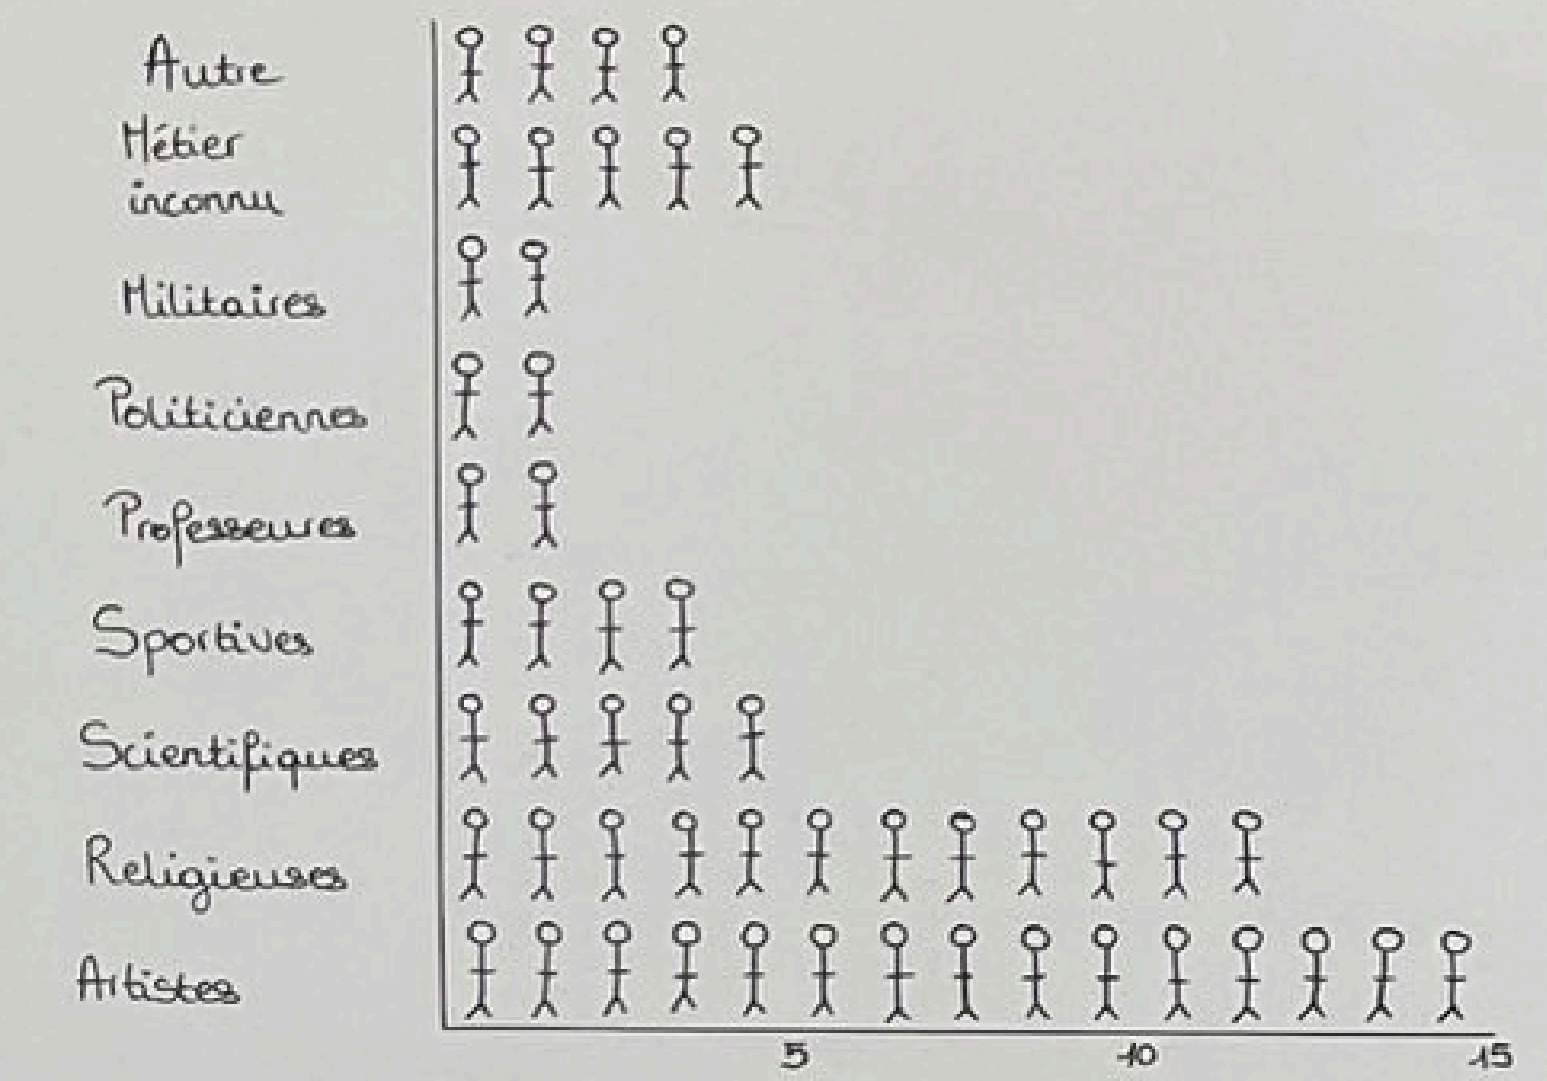 Autre
Métier
inconnu
Militaires
Politiciennes
Professeures
Sportives
Scientifiques
Religieuses
Artistes
5
10
15